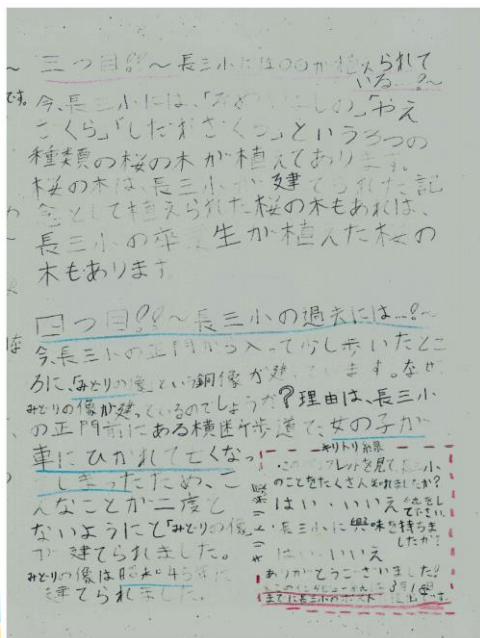 三つ目!?~長三小には〇〇が植えられて
いる…?~
今、長三小には、「そめいよしの」「やえ
ざくら」「しだれざくら」という3つの
種類の桜の木が植えてあります。
桜の木は、長三小が建てられた記
念として植えられた桜の木もあれば、
長三小の卒業生が植えた桜の
木もあります。
四つ目!?~長三小の過去には…!?~
今、長三小の正門から入って少し歩いたとこ
ろに、「みどりの像」という銅像が建っています。なぜ
みどりの像が建っているのでしょうか?理由は、長三小
の正門前にある横断歩道で、女の子が
車にひかれて亡くなっ
てしまったため、こ
んなことが二度と
ないようにと「みどりの像」
が建てられました。
みどりの像は昭和45年に
建てられました。
キリトリ線
・このパンフレットを見て、長三小
のことをたくさん知れましたか?
はい・いいえ
・長三小に興味を持ちま
したか?
はい・いいえ
ありがとうございました!
までに長三小のポスト
です。